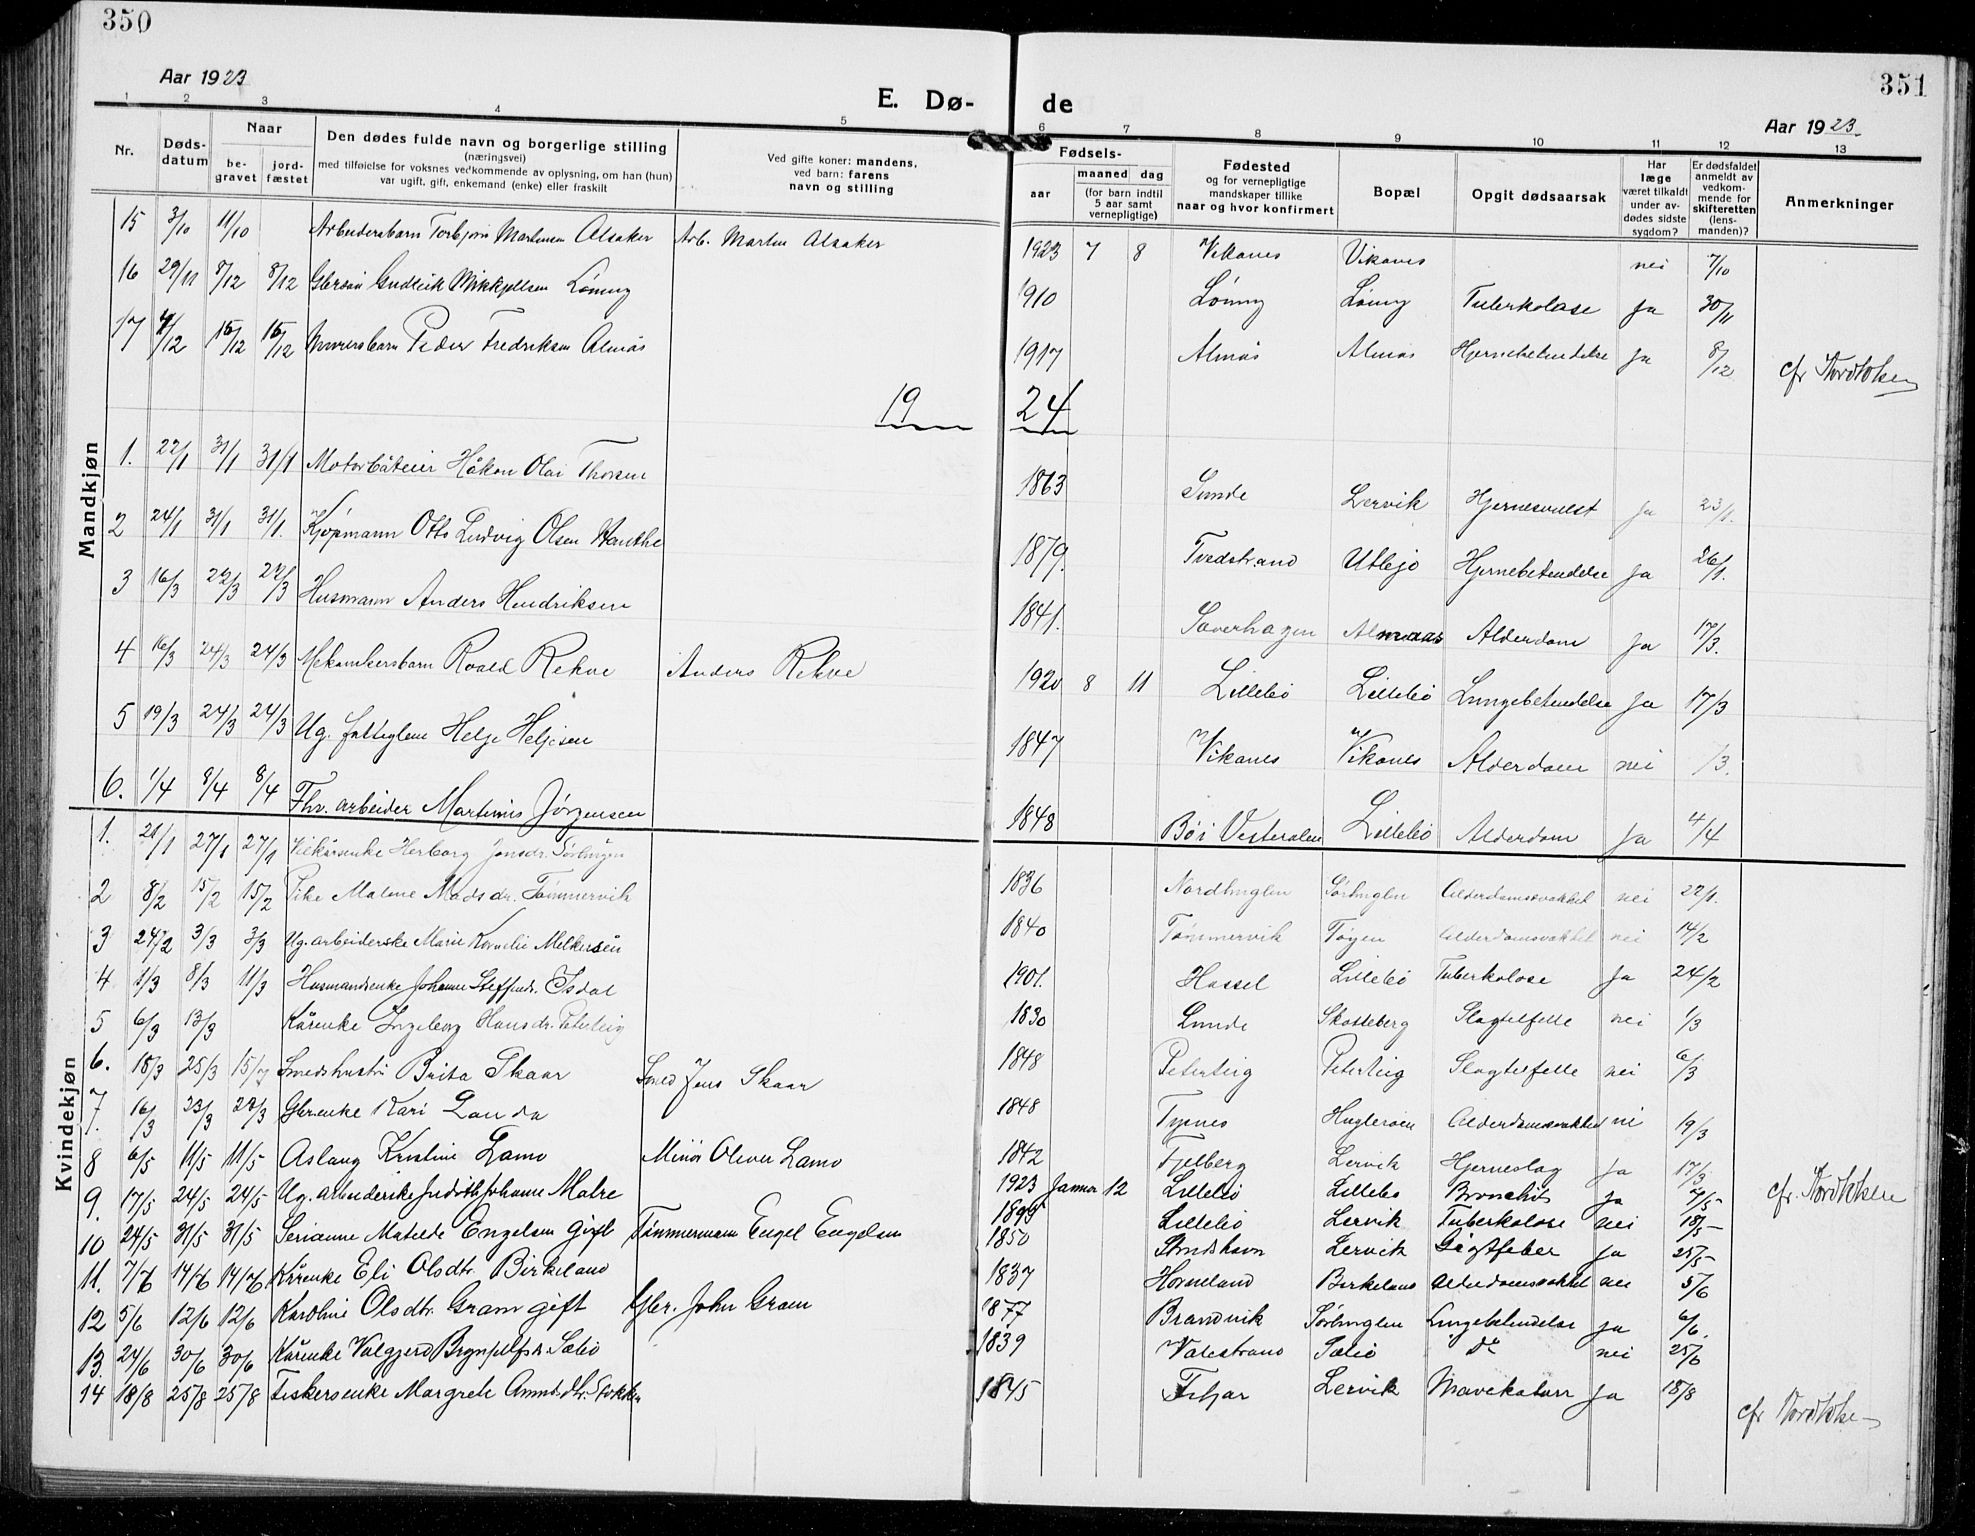 350
351
Aar 1923
E. Dø- de
Aar 1923
1 2 3 4 5 6 7 8 9 10 11 12 13
Nr.
Døds-
datum
Naar
be-
gravet
jord-
fæstet
Den dødes fulde navn og borgerlige stilling
(næringsvei)
med tilføielse for voksnes vedkommende av oplysning, om han (hun)
var ugift, gift, enkemand (enke) eller fraskilt
Ved gifte koner: mandens,
ved barn: farens
navn og stilling
Fødsels-
aar
maaned dag
(for barn indtil
5 aar samt
vernepligtige)
Fødested
og for vernepligtige
mandskaper tillike
naar og hvor konfirmert
Bopæl
Opgit dødsaarsak
Har
læge
været tilkaldt
under av-
dødes sidste
sygdom?
Er dødsfaldet
anmeldt av
vedkom-
mende for
skifteretten
(lens-
manden)?
Anmerkninger
Mandkjøn
15 3/10 11/10 Arbeidersbarn Torbjørn Martinsen Alsaker Arb. Martin Alsaker 1923 7 8 Vikanes Vikanes nei 7/10
16 29/11 8/12 8/12 Gudleik Mikkjellsen Lønny 1910 Lønny Lønny Tuberkolose Ja 30/11
17 4/12 15/12 15/12 Peder Fredriksen Almås 1917 Almås Almås Hjernebetendelse Ja 8/12 cfr
19 24
1. 22/1 31/1 31/1 Motorbåteier Håkon Olai Thorsen 1863 Sunde Lervik Hjernesvulst Ja 23/1.
2 24/1 31/1 31/1. Kjøpmann Otto Ludvig Olsen 1879. Tvedstrand Utbjo Hjernebetendelse Ja 26/1.
3 16/3 22/3 22/3 Husmann Anders Hendriksen 1841. Almaas Alderdom Ja 17/3.
4 16/3 24/3 24/3 Mekanikersbarn Roald Rekve Anders Rekve 1920 8 11 Lillebø Lillebø Lungebetendelse Ja 17/3
5 19/3 24/3 24/3 Ug. fattiglem Helje Heljesen 1847 Vikanes Vikanes Alderdom nei /3.
6. 1/4 8/4 8/4 Fhv. arbeider Martinus Jørgensen 1848 Bøi Vesteralen Lillebø Alderdom Ja 4/4
Kvindekjøn
1. 21/1 27/1 27/1 Herborg Jonsdr. 1836 Nordhuglen Sørhuglen Alderdomssvakhet nei 22/1.
2 8/2 15/2 15/2 Pike Malene Madsdr. Tømmervik 1840 Tømmervik Tøgen Alderdomssvakhet nei 14/2
3 24/2 3/3 3/3 Ug. arbeiderske Marie Kornelie Melkersen 1901. Hassel Lillebø Tuberkolose Ja 24/2
4 1/3 8/3 11/3 Husmandsenke Johanne Steffensdr. Isdal 1830 Lunde Skotteberg Slagtilfelle nei 1/3
5 6/3 13/3 Kårenke Ingeborg Hansdr. Peterteig 1848 Peterteig Peterteig Slagtilfelle nei 6/3
6. 18/3 25/3 15/7 Smedshustru Brita Skaar Smed Jens Skaar 1848 Tysnes Huglerøen Alderdomssvakhet nei 19/3
7. 16/3 23/3 23/3 Gbrenke Kari Landa 1842 Fjelberg Lervik Hjerneslag Ja 17/3
8 6/5 11/5 11/5 Aslaug Kristine Lamo Minør Oliver Lamo 1923 Januar 12 Lillebø Lillebø Bronchit Ja 7/5
9. 17/5 24/5 24/5 Ug. arbeiderske Judith Johanne Malre 1899 Lillebø Lervik Tuberkolose nei 18/5
10 24/5 31/5 31/5 Serianne Matilde Engelsen gift Tømmermann Engel Engelsen 1850 Lervik Gigtfeber Ja 25/5
11. 7/6 14/6 14/6 Kårenke Eli Olsdtr. Birkeland 1837 Horneland Birkeland Alderdomssvakhet nei 5/6
12 5/6 12/6 12/6 Karoline Olsdtr. Gram gift Gbr. John Gram 1877 Brandvik Sørhuglen Lungebetendelse Ja 6/6.
13. 24/6 30/6 30/6 Kårenke Valgjerd Brynjelfsdr. Sætø 1839 Valestrand Sætø do nei 25/6
14 18/8 25/8 25/8 Fiskersenke Margrete 1845 Fitjar Lervik Mavekatarr Ja 18/8 cfr